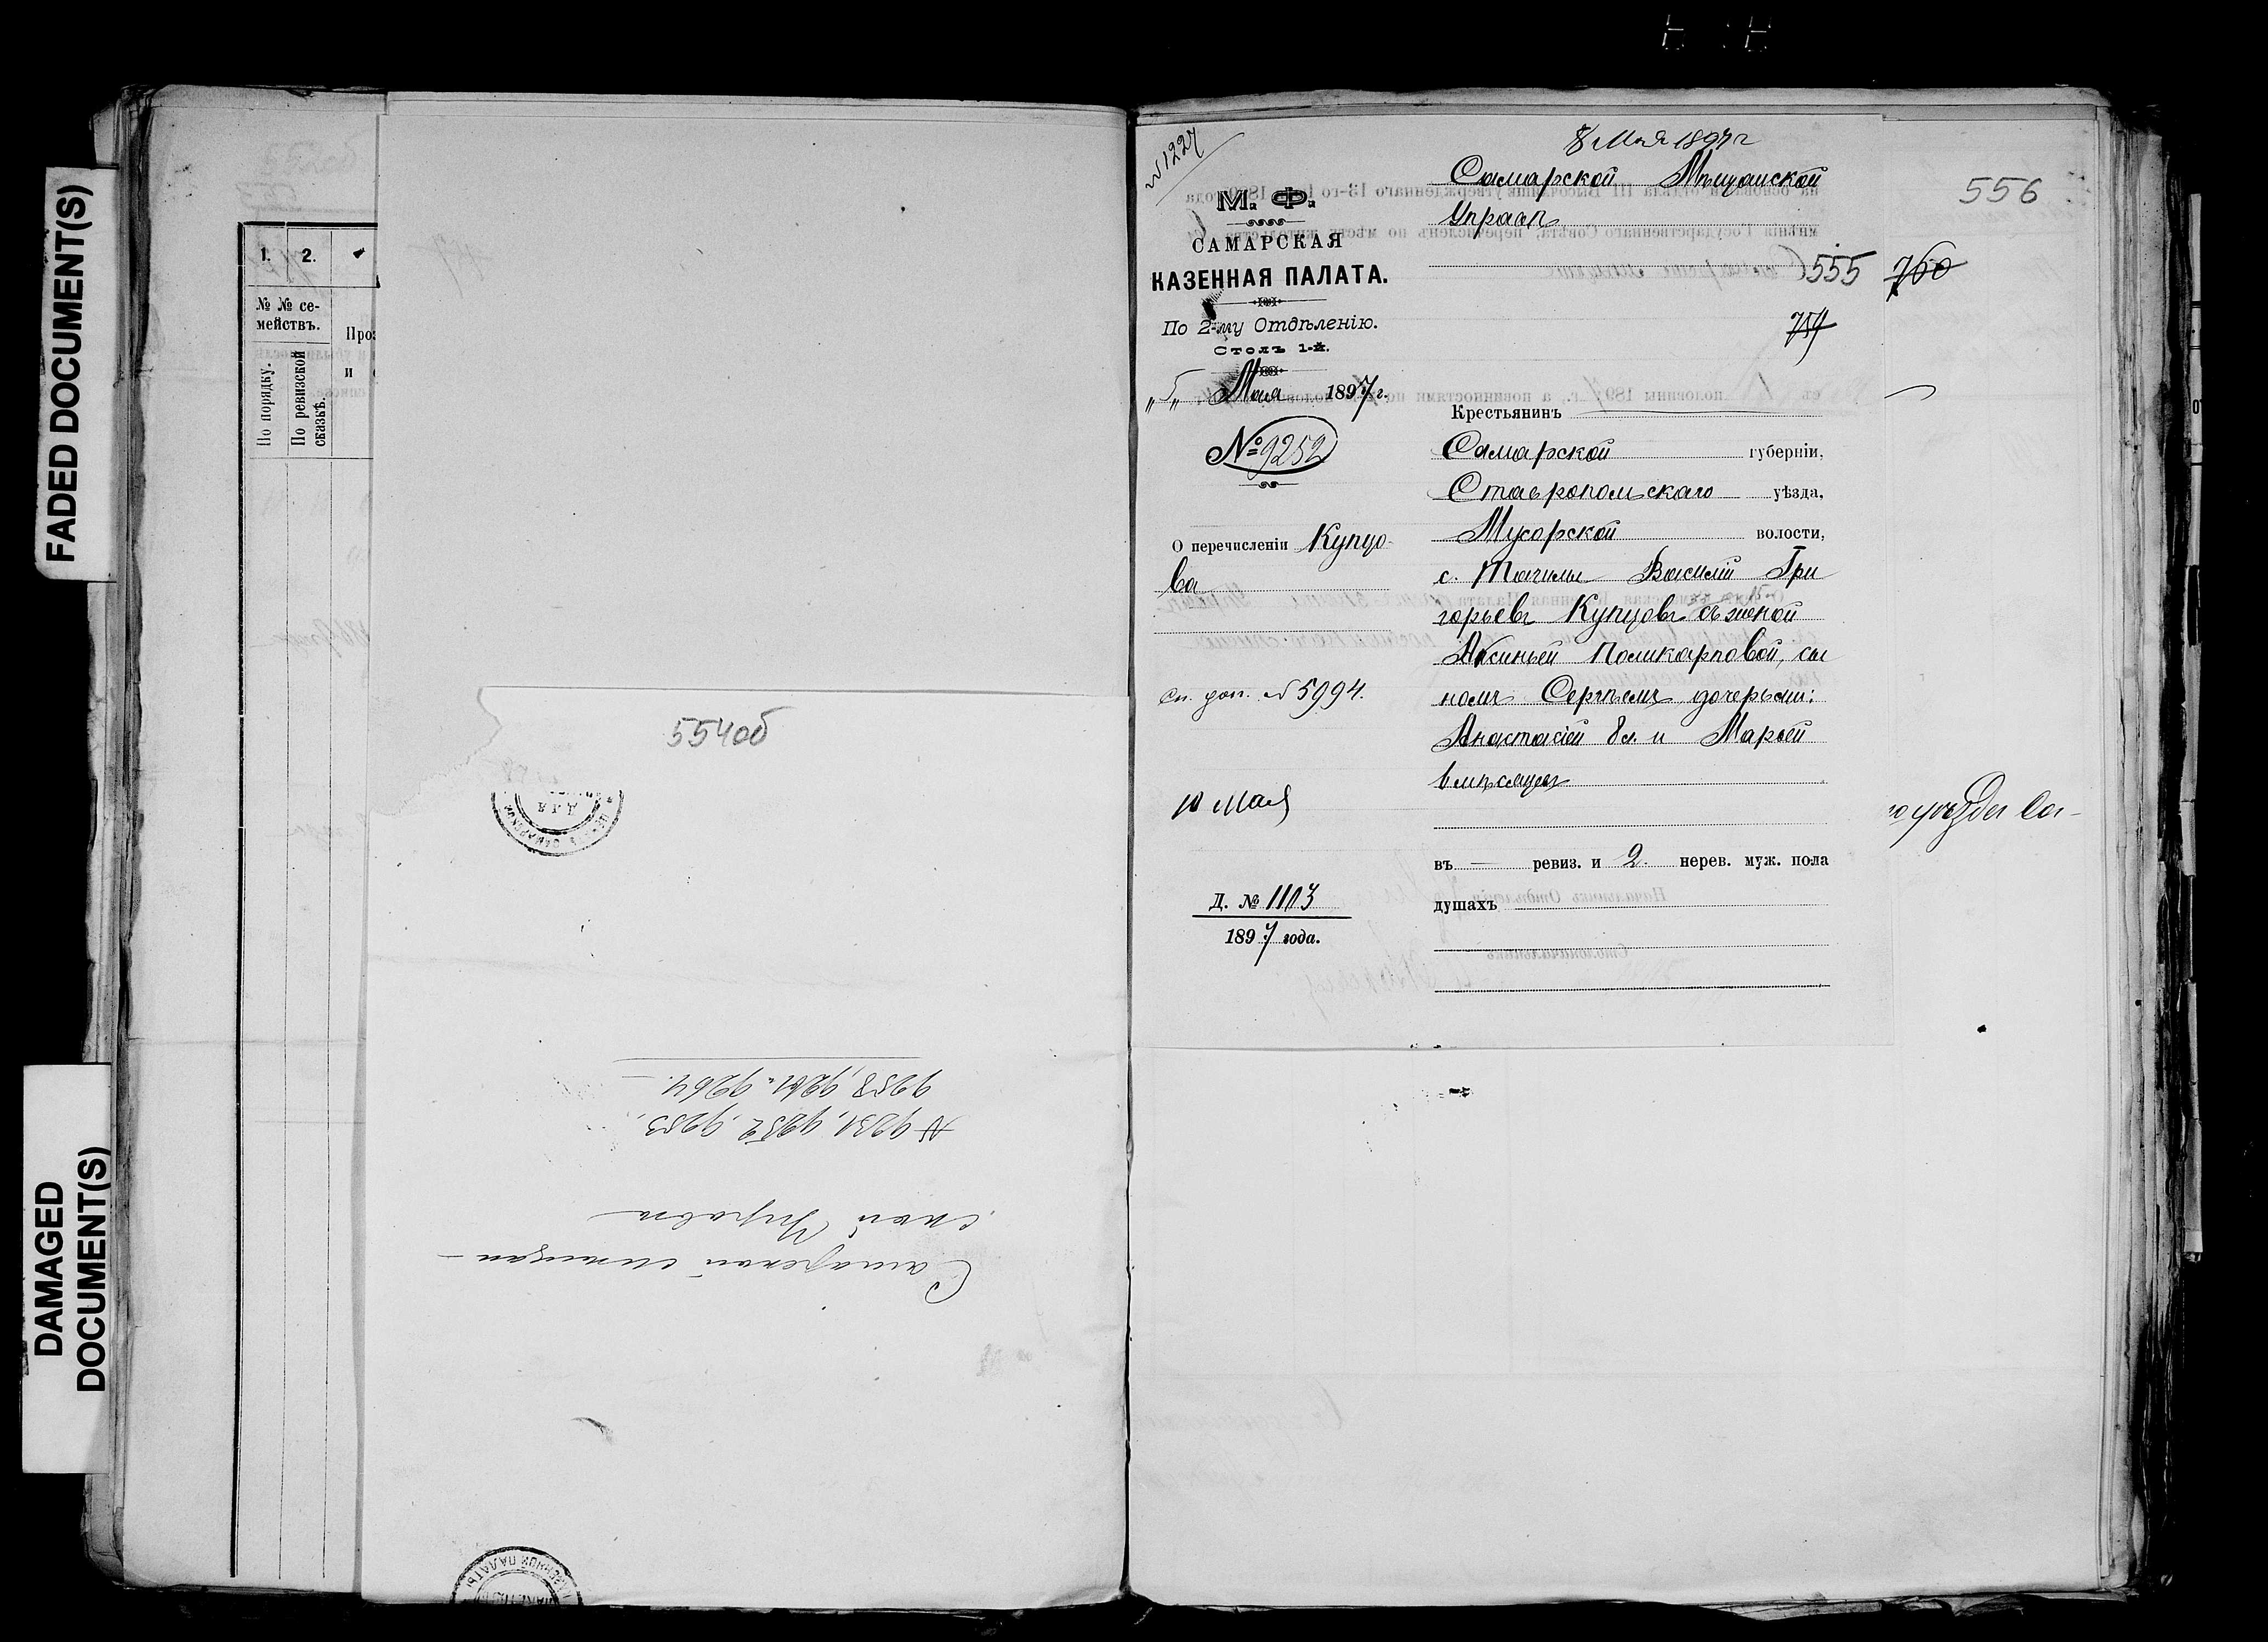 FADED DOCUMENT(S)
DAMAGED
DOCUMENT(S)
1. 2.
№ № се-
мействъ.
По порядку.
По ревизской
сказкѣ.
Проз
и
554об
9258, 9261 и 9264.
№ 9231, 9252, 9253,
ской Управѣ
Самарской мѣщан-
№ 1227
8 Мая 1897 г
М. Ф.
САМАРСКАЯ
КАЗЕННАЯ ПАЛАТА.
По 2-му Отдѣленію.
Столъ 1-й.
„5„ Мая 1897 г.
№ 9252
О перечисленіи Купцо-
ва
См. доп. № 5994.
10 Мая
Д. № 1103
1897 года.
Самарской Мѣщанской
Управѣ
555
759
Крестьянинъ
Самарской губерніи,
Ставропольскаго уѣзда,
Мусорской волости,
с. Ташлы Василій Гри
горьевъ Купцовъ съ женой
Аксиньей Поликарповой, сы
номъ Сергѣемъ дочерьми:
Анастасіей 8 л. и Марьей
6 мѣсяцевъ
въ — ревиз. и 2. нерев. муж. пола
душахъ
556
760
уѣзда Са-